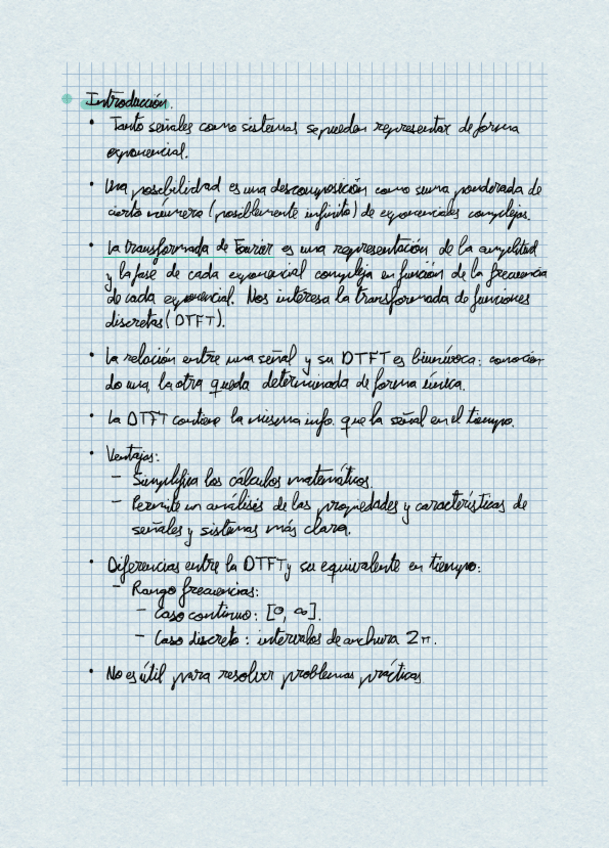 Introducción.
• Tanto señales como sistemas se pueden representar de forma
exponencial.
• Una posibilidad es una descomposición como suma ponderada de
cierto número (posiblemente infinito) de exponenciales complejas.
• La transformada de Fourier es una representación de la amplitud
y la fase de cada exponencial compleja en función de la frecuencia
de cada exponencial. Nos interesa la transformada de funciones
discretas (DTFT).
• La relación entre una señal y su DTFT es biunívoca: conocien-
do una, la otra queda determinada de forma única.
• La DTFT contiene la misma info. que la señal en el tiempo.
• Ventajas:
– Simplifica los cálculos matemáticos.
– Permite un análisis de las propiedades y características de
señales y sistemas más clara.
• Diferencias entre la DTFT y su equivalente en tiempo:
– Rango frecuencias:
– Caso continuo: [0, ∞].
– Caso discreto: intervalos de anchura 2π.
• No es útil para resolver problemas prácticos